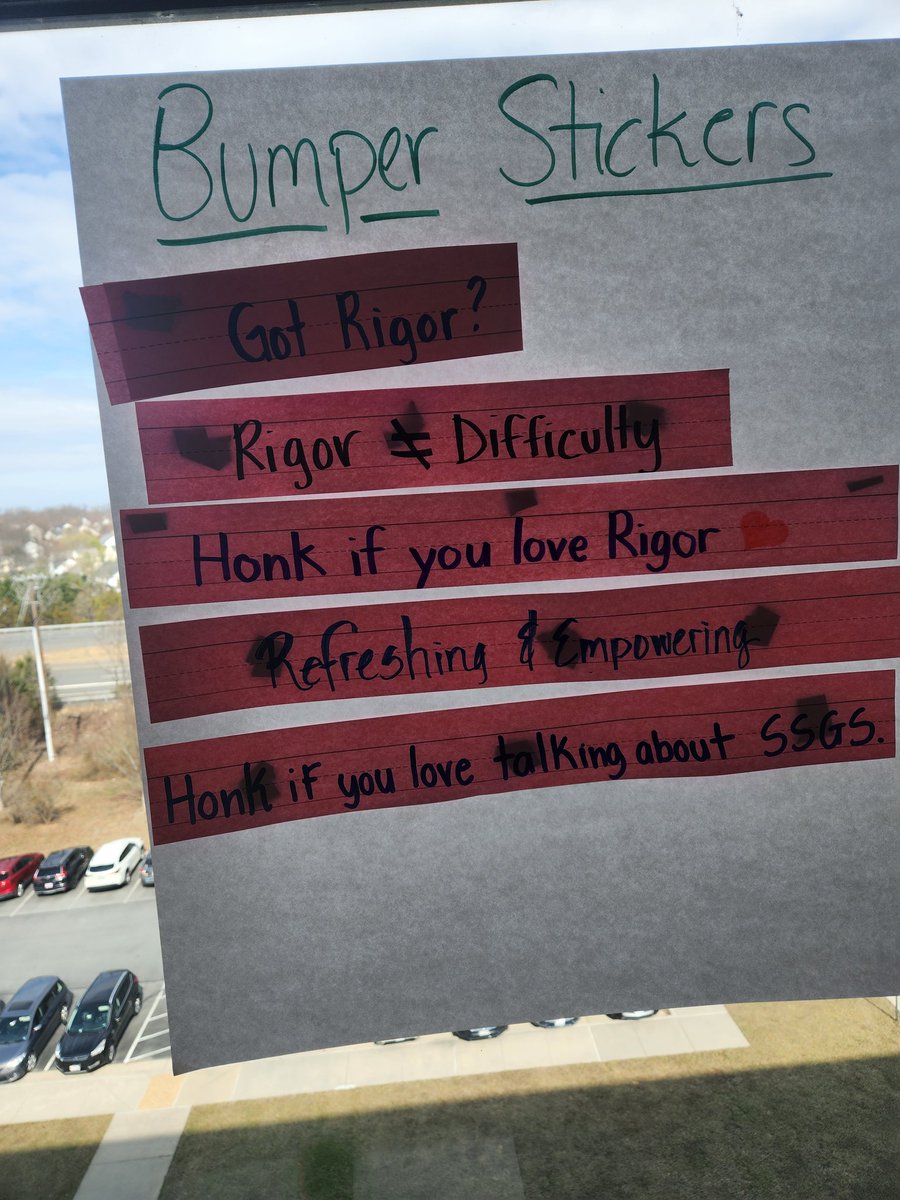 Bumper Stickers
Got Rigor?
Rigor ≠ Difficulty
Honk if you love Rigor ❤
Refreshing & Empowering
Honk if you love talking about SSGS.